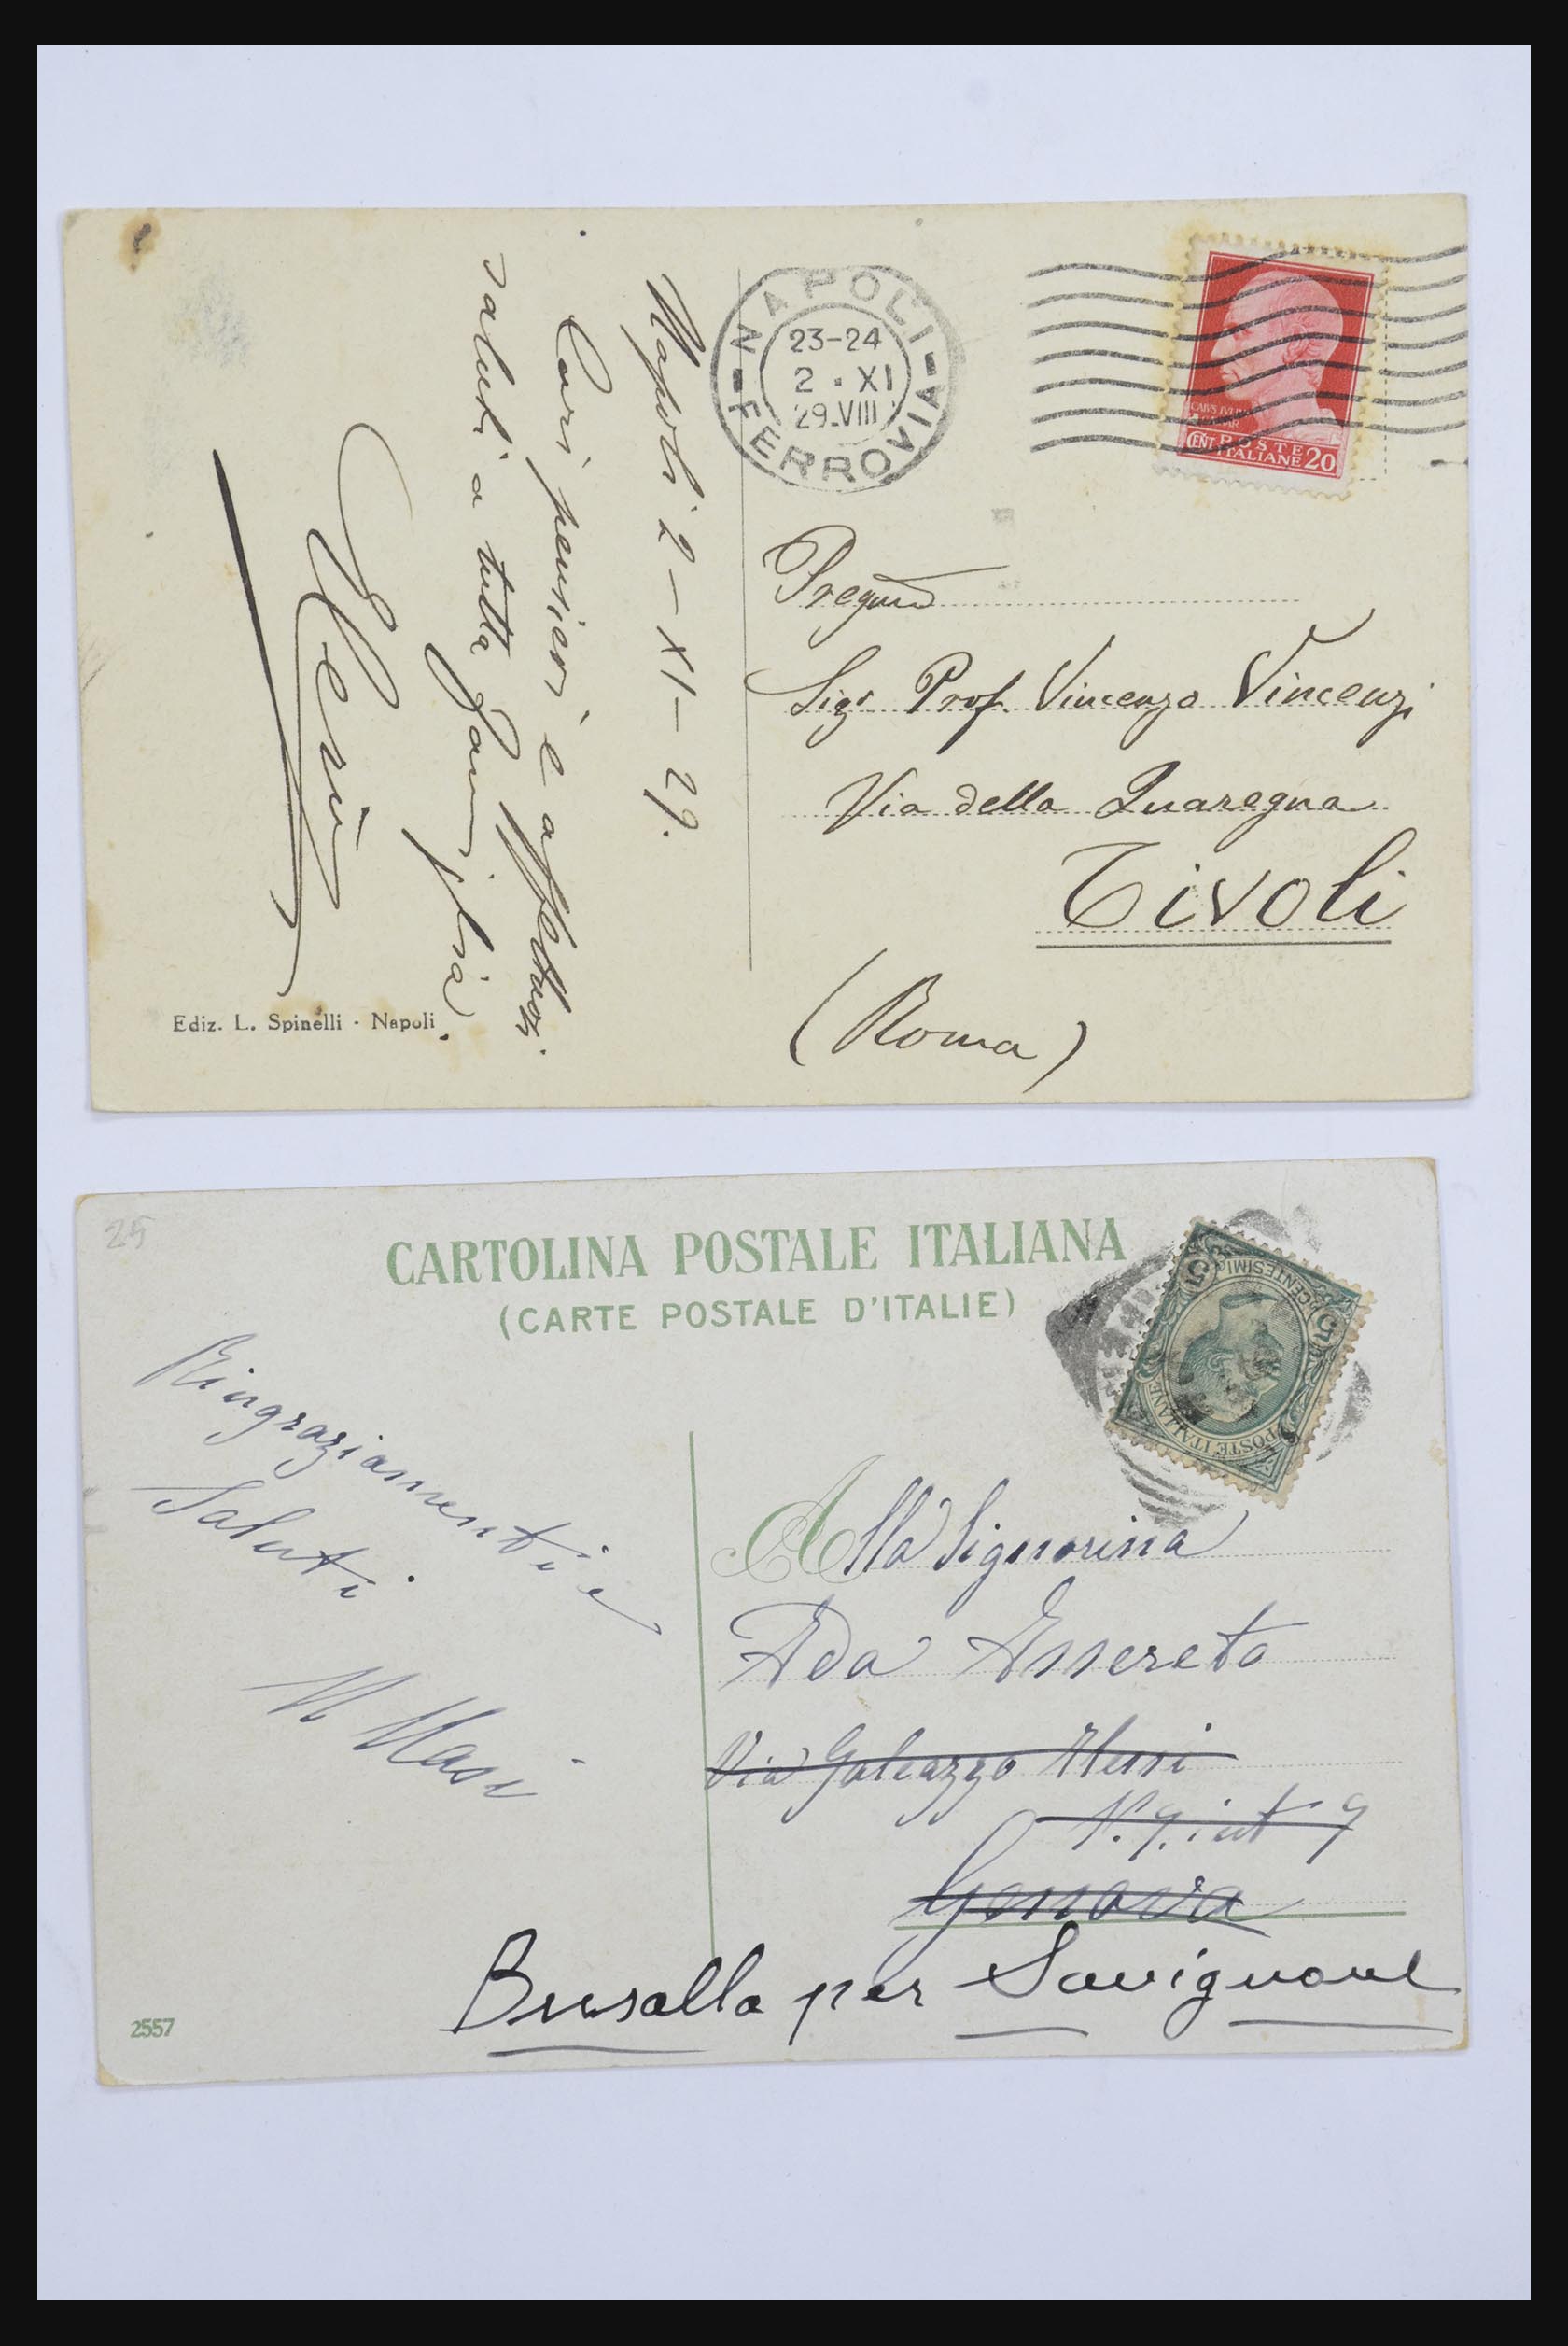 NAPOLI
23-24
2 . XI
29.VIII
FERROVIA
CENT POSTE
ITALIANE 20
Napoli 2 - XI - 29.
Cari pensieri e affettuosi
saluti a tutta famiglia.
Sigr Prof. Vincenzo Vincenzi
Via della Quaregna
Tivoli
(Roma)
Ediz. L. Spinelli - Napoli
25
CARTOLINA POSTALE ITALIANA
(CARTE POSTALE D'ITALIE)
5 CENTESIMI 5
POSTE ITALIANE
Ringraziamenti e
Saluti.
M Masi
Alla Signorina
Ada Assereto
Via Galeazzo Alessi
N. 9. int 9
Genova
Busalla per Savignone
2557